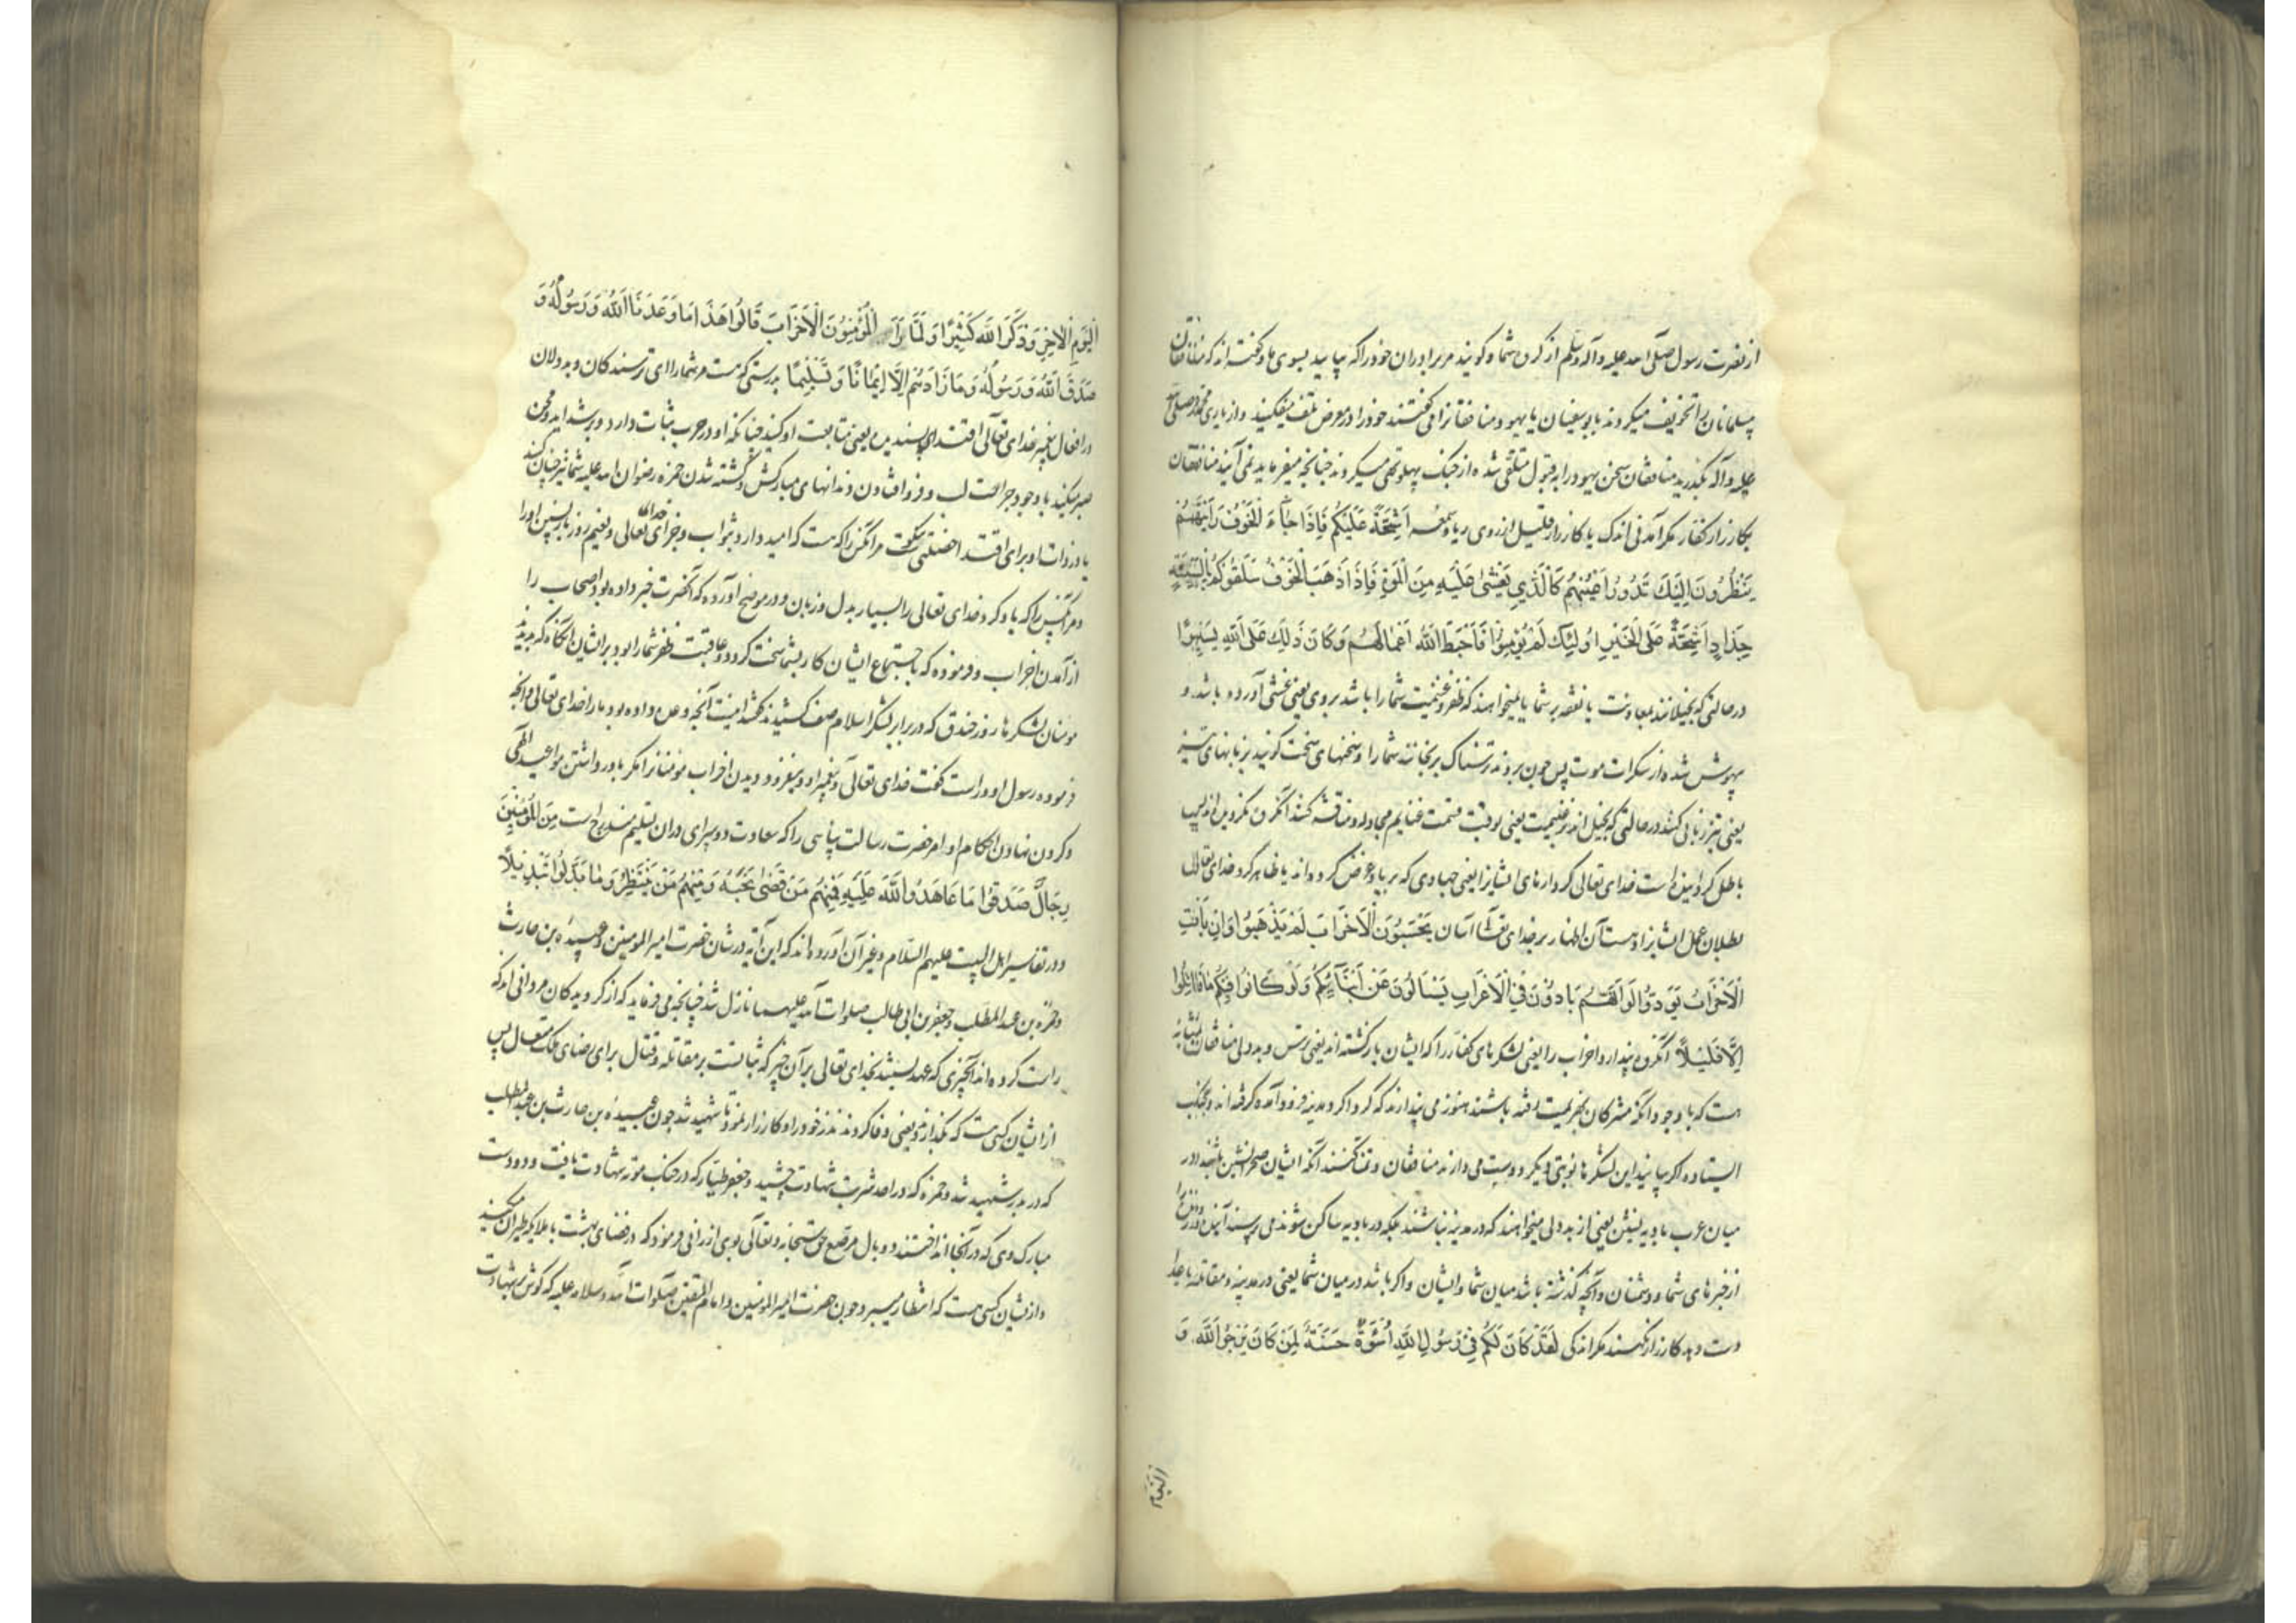 از نصرت رسول صلی الله علیه وآله وسلم از کردن شما وکویند مر برادران خود را که بیایید بسوی ما وکفته اند که منافقان
مسلمانان را تخویف میکردند بابوسفیان یا یهود منافقانرا می کفتند خود را در معرض تلف میفکنید واز یاری محمد صلی الله
علیه وآله بگذرید منافقان سخن یهود را بقبول متلقی شده از جنک پهلو تهی میکردند چنانچه میفرماید نمی آیند منافقان
بکارزار کفار مکر آمدنی اندک یا کارزار قلیل از روی ریا وسمعه اَشِحَّةً عَلَیْکُم فَاِذَا جَآءَ الْخَوْفُ رَاَیْتَهُمْ
یَنْظُرُونَ اِلَیْکَ تَدُورُ اَعْیُنُهُمْ کَالَّذِی یُغْشٰی عَلَیْهِ مِنَ الْمَوْتِ فَاِذَا ذَهَبَ الْخَوْفُ سَلَقُوکُمْ بِاَلْسِنَةٍ
حِدَادٍ اَشِحَّةً عَلَی الْخَیْرِ اُولٰئِکَ لَمْ یُؤْمِنُوا فَاَحْبَطَ اللهُ اَعْمَالَهُمْ وَکَانَ ذٰلِکَ عَلَی اللهِ یَسِیرًا
در حالتی که بخیلانند بمعاونت یا نفقه بر شما یا نمیخواهند که ظفر وغنیمت شما را باشد بروی یعنی غشی آورده باشد و
بیهوش شده از سکرات موت پس چون برود ترسناک برنجانند شما را وسخنهای سخت کویند بزبانهای تیز
یعنی تیز زبانی کنند در حالتی که بخیل اند بر غنیمت یعنی بوقت قسمت غنایم مجادله ومناقشه کنند آنکروه نکرویده اند پس
باطل کردانیده است خدای تعالی کردارهای ایشانرا یعنی جهادی که بریا وغرض کرده اند یا ظاهر کرد خدای تعالی
بطلان عمل ایشانرا وهست آن اظهار بر خدای تعالی آسان یَحْسَبُونَ الْاَحْزَابَ لَمْ یَذْهَبُوا وَاِنْ یَاْتِ
الْاَحْزَابُ یَوَدُّوا لَوْ اَنَّهُمْ بَادُونَ فِی الْاَعْرَابِ یَسْاَلُونَ عَنْ اَنْبَآئِکُمْ وَلَوْ کَانُوا فِیکُمْ مَا قَاتَلُوا
اِلَّا قَلِیلًا آنکروه پندارند احزاب را یعنی لشکرهای کفار را که ایشان بازکشته اند یعنی ترس وبددلی منافقان بمثابهٔ
هست که با وجود آنکه مشرکان بهزیمت رفته باشند هنوز می پندارند که کرداکرد مدینه فرود آمده کرفته اند وبجنک
ایستاده اکر بیایند این لشکرها نوبتی دیکر دوست می دارند منافقان وتمنا کنند آنکه ایشان صحرانشین باشند در
میان عرب بادیه نشین یعنی از بددلی میخواهند که در مدینه نباشند بلکه در بادیه ساکن شوند می پرسند
از خبرهای شما ودشمنان وآنچه کذشته باشد میان شما وایشان واکر باشند در میان شما یعنی در مدینه ومقاتله با اعدا
دست دهد کارزار نکنند مکر اندکی لَقَدْ کَانَ لَکُمْ فِی رَسُولِ اللهِ اُسْوَةٌ حَسَنَةٌ لِمَنْ کَانَ یَرْجُوا اللهَ وَ
الْیَوْمَ
الْیَوْمَ الْآخِرَ وَذَکَرَ اللهَ کَثِیرًا وَلَمَّا رَاَ الْمُؤْمِنُونَ الْاَحْزَابَ قَالُوا هٰذَا مَا وَعَدَنَا اللهُ وَرَسُولُهُ وَ
صَدَقَ اللهُ وَرَسُولُهُ وَمَا زَادَهُمْ اِلَّا اِیمَانًا وَتَسْلِیمًا بدرستی که هست مر شما را ای ترسندکان وبددلان
در افعال پیغمبر خدای تعالی اقتدای پسندیده یعنی متابعت او کنید چنانکه او در حرب ثبات دارد وبر شداید ومحن
صبر میکند با وجود جراحت لب وفرو افتادن دندانهای مبارکش وکشته شدن حمزه رضوان الله علیه شما نیز چنان کنید
یا در ذات او برای اقتدا خصلتی نیکوست مر آنکس را که هست که امید دارد ثواب وجزای خدای تعالی ونعیم روز بازپسین او را
ومر آنکس را که یاد کرد خدای تعالی را بسیار بدل وزبان ودر موضح آورده که آنحضرت خبر داده بود اصحاب را
از آمدن احزاب وفرموده که باجتماع ایشان کار بشما سخت کردد وعاقبت ظفر شما را بود بر ایشان آنگاه که بدیدند
مومنان لشکرها روز خندق که در برابر لشکر اسلام صف کشیدند کفتند اینست آنچه وعده داده بود ما را خدای تعالی وآنچه
فرموده رسول او وراست کفت خدای تعالی وپیغمبر او ونیفزود دیدن احزاب مومنانرا مکر باور داشتن مواعید الهی
وکردن نهادن احکام اوامر حضرت رسالت پناهی را که سعادت دوسرای در آن تسلیم مندرج است مِنَ الْمُؤْمِنِینَ
رِجَالٌ صَدَقُوا مَا عَاهَدُوا اللهَ عَلَیْهِ فَمِنْهُمْ مَنْ قَضٰی نَحْبَهُ وَمِنْهُمْ مَنْ یَنْتَظِرُ وَمَا بَدَّلُوا تَبْدِیلًا
ودر تفاسیر اهل البیت علیهم السلام وغیر آن آورده اند که این آیه در شان حضرت امیر المومنین وعبیدهٔ بن حارث
وحمزه بن عبد المطلب وجعفر بن ابی طالب صلوات الله علیهما نازل شد چنانچه می فرماید که از کرویدکان مردانی اند که
راست کرده اند آنچیزی که عهد بستند بخدای تعالی بر آن چیز که ثباتست بر مقاتله وقتال برای رضای ملک متعال پس
از ایشان کسی هست که بگذارد یعنی وفا کردند نذر خود را وکارزار نمود تا شهید شد چون عبیدهٔ بن حارث بن عبد المطلب
که در بدر شهید شد وحمزه که در احد شربت شهادت چشید وجعفر طیار که در جنک موته شهادت یافت ودو دست
مبارک وی که در آنجا انداختند دو بال مرصع حق سبحانه وتعالی بوی ارزانی فرمود که در فضای بهشت با ملایکه طیران میکند
وازیشان کسی هست که انتظار میبرد چون حضرت امیر المومنین وامام المتقین صلوات الله وسلامه علیه که کوش بر شهادت